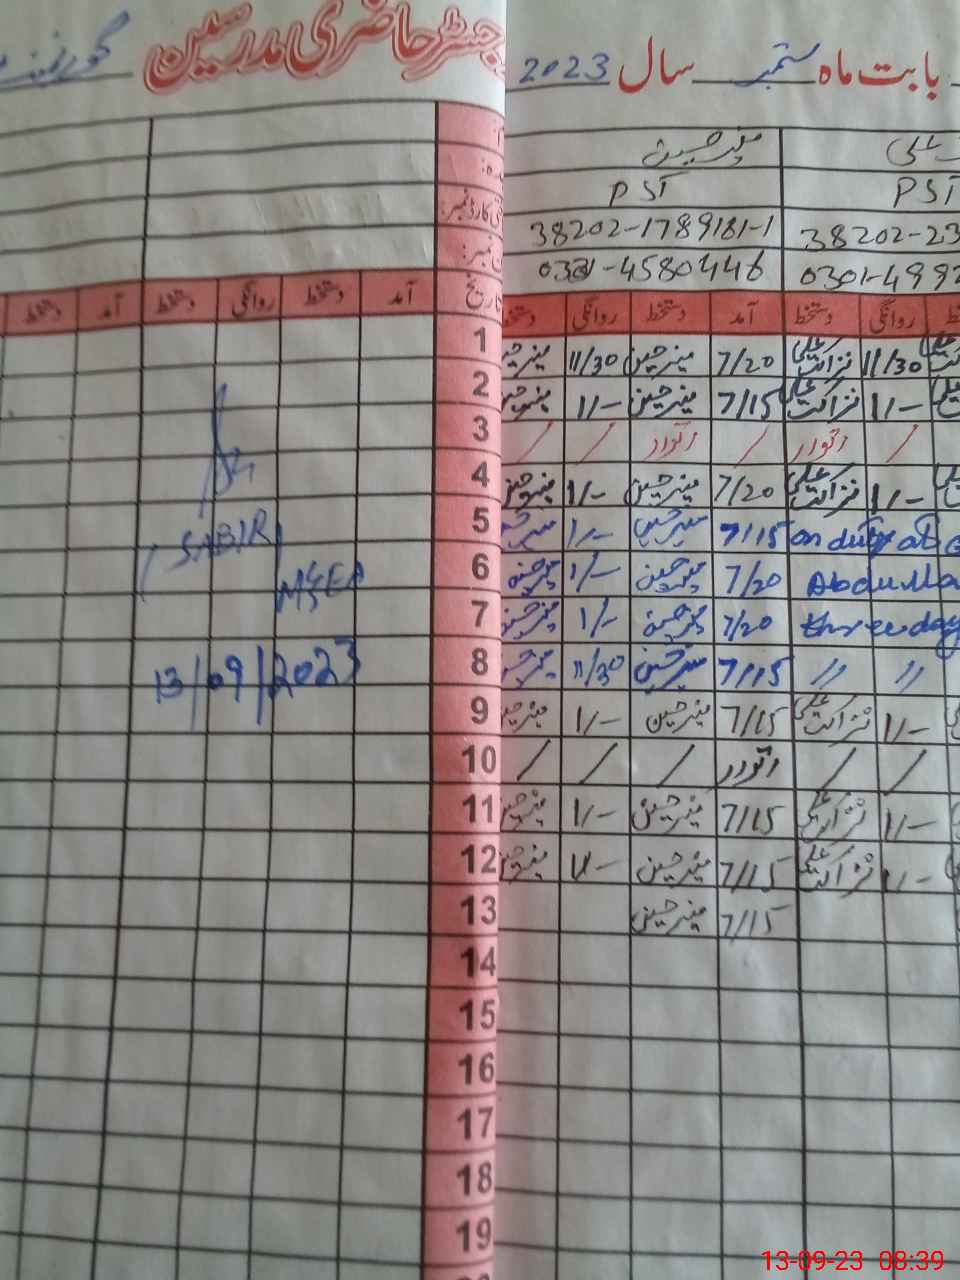 رجسٹر حاضری مدرسین
گورنمنٹ
بابت ماہ ستمبر سال 2023
منیر حسین
علی
PST
PST
38202-1789181-1
38202-23
4580446
0301-4992
تاریخ
آمد دستخط روانگی دستخط آمد دستخط
دستخط روانگی دستخط آمد دستخط روانگی
1 منیر حسین 7/20 منیر حسین 11/30 نزاکت علی 11/30
2 منیر حسین 7/15 منیر حسین 1/- نزاکت علی 1/-
3 / / اتوار / اتوار /
4 منیر حسین 7/20 منیر حسین 1/- نزاکت علی 1/-
5 منیر حسین 7/15 منیر حسین 1/- on duty at
6 منیر حسین 7/20 منیر حسین 1/- Abdulla
7 منیر حسین 7/20 منیر حسین 1/- three day
8 منیر حسین 7/15 منیر حسین 11/30 〃 〃
9 منیر حسین 7/15 منیر حسین 1/- نزاکت علی 1/-
10 / / / اتوار / /
11 منیر حسین 7/15 منیر حسین 1/- نزاکت علی 1/-
12 منیر حسین 7/15 منیر حسین 1/- نزاکت علی 1/-
13 منیر حسین 7/15
14
15
16
17
18
19
SABIR
MEEA
13/09/2023
13-09-23 08:39